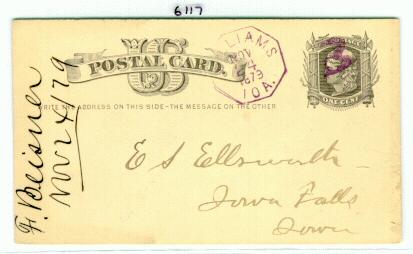 6117
US
POSTAL CARD.
LIAMS
NOV
24
1879
IOA.
ONE CENT
WRITE THE ADDRESS ON THIS SIDE-THE MESSAGE ON THE OTHER
F. Beisner
Nov 24 79
E S Ellsworth
Iowa Falls
Iowa